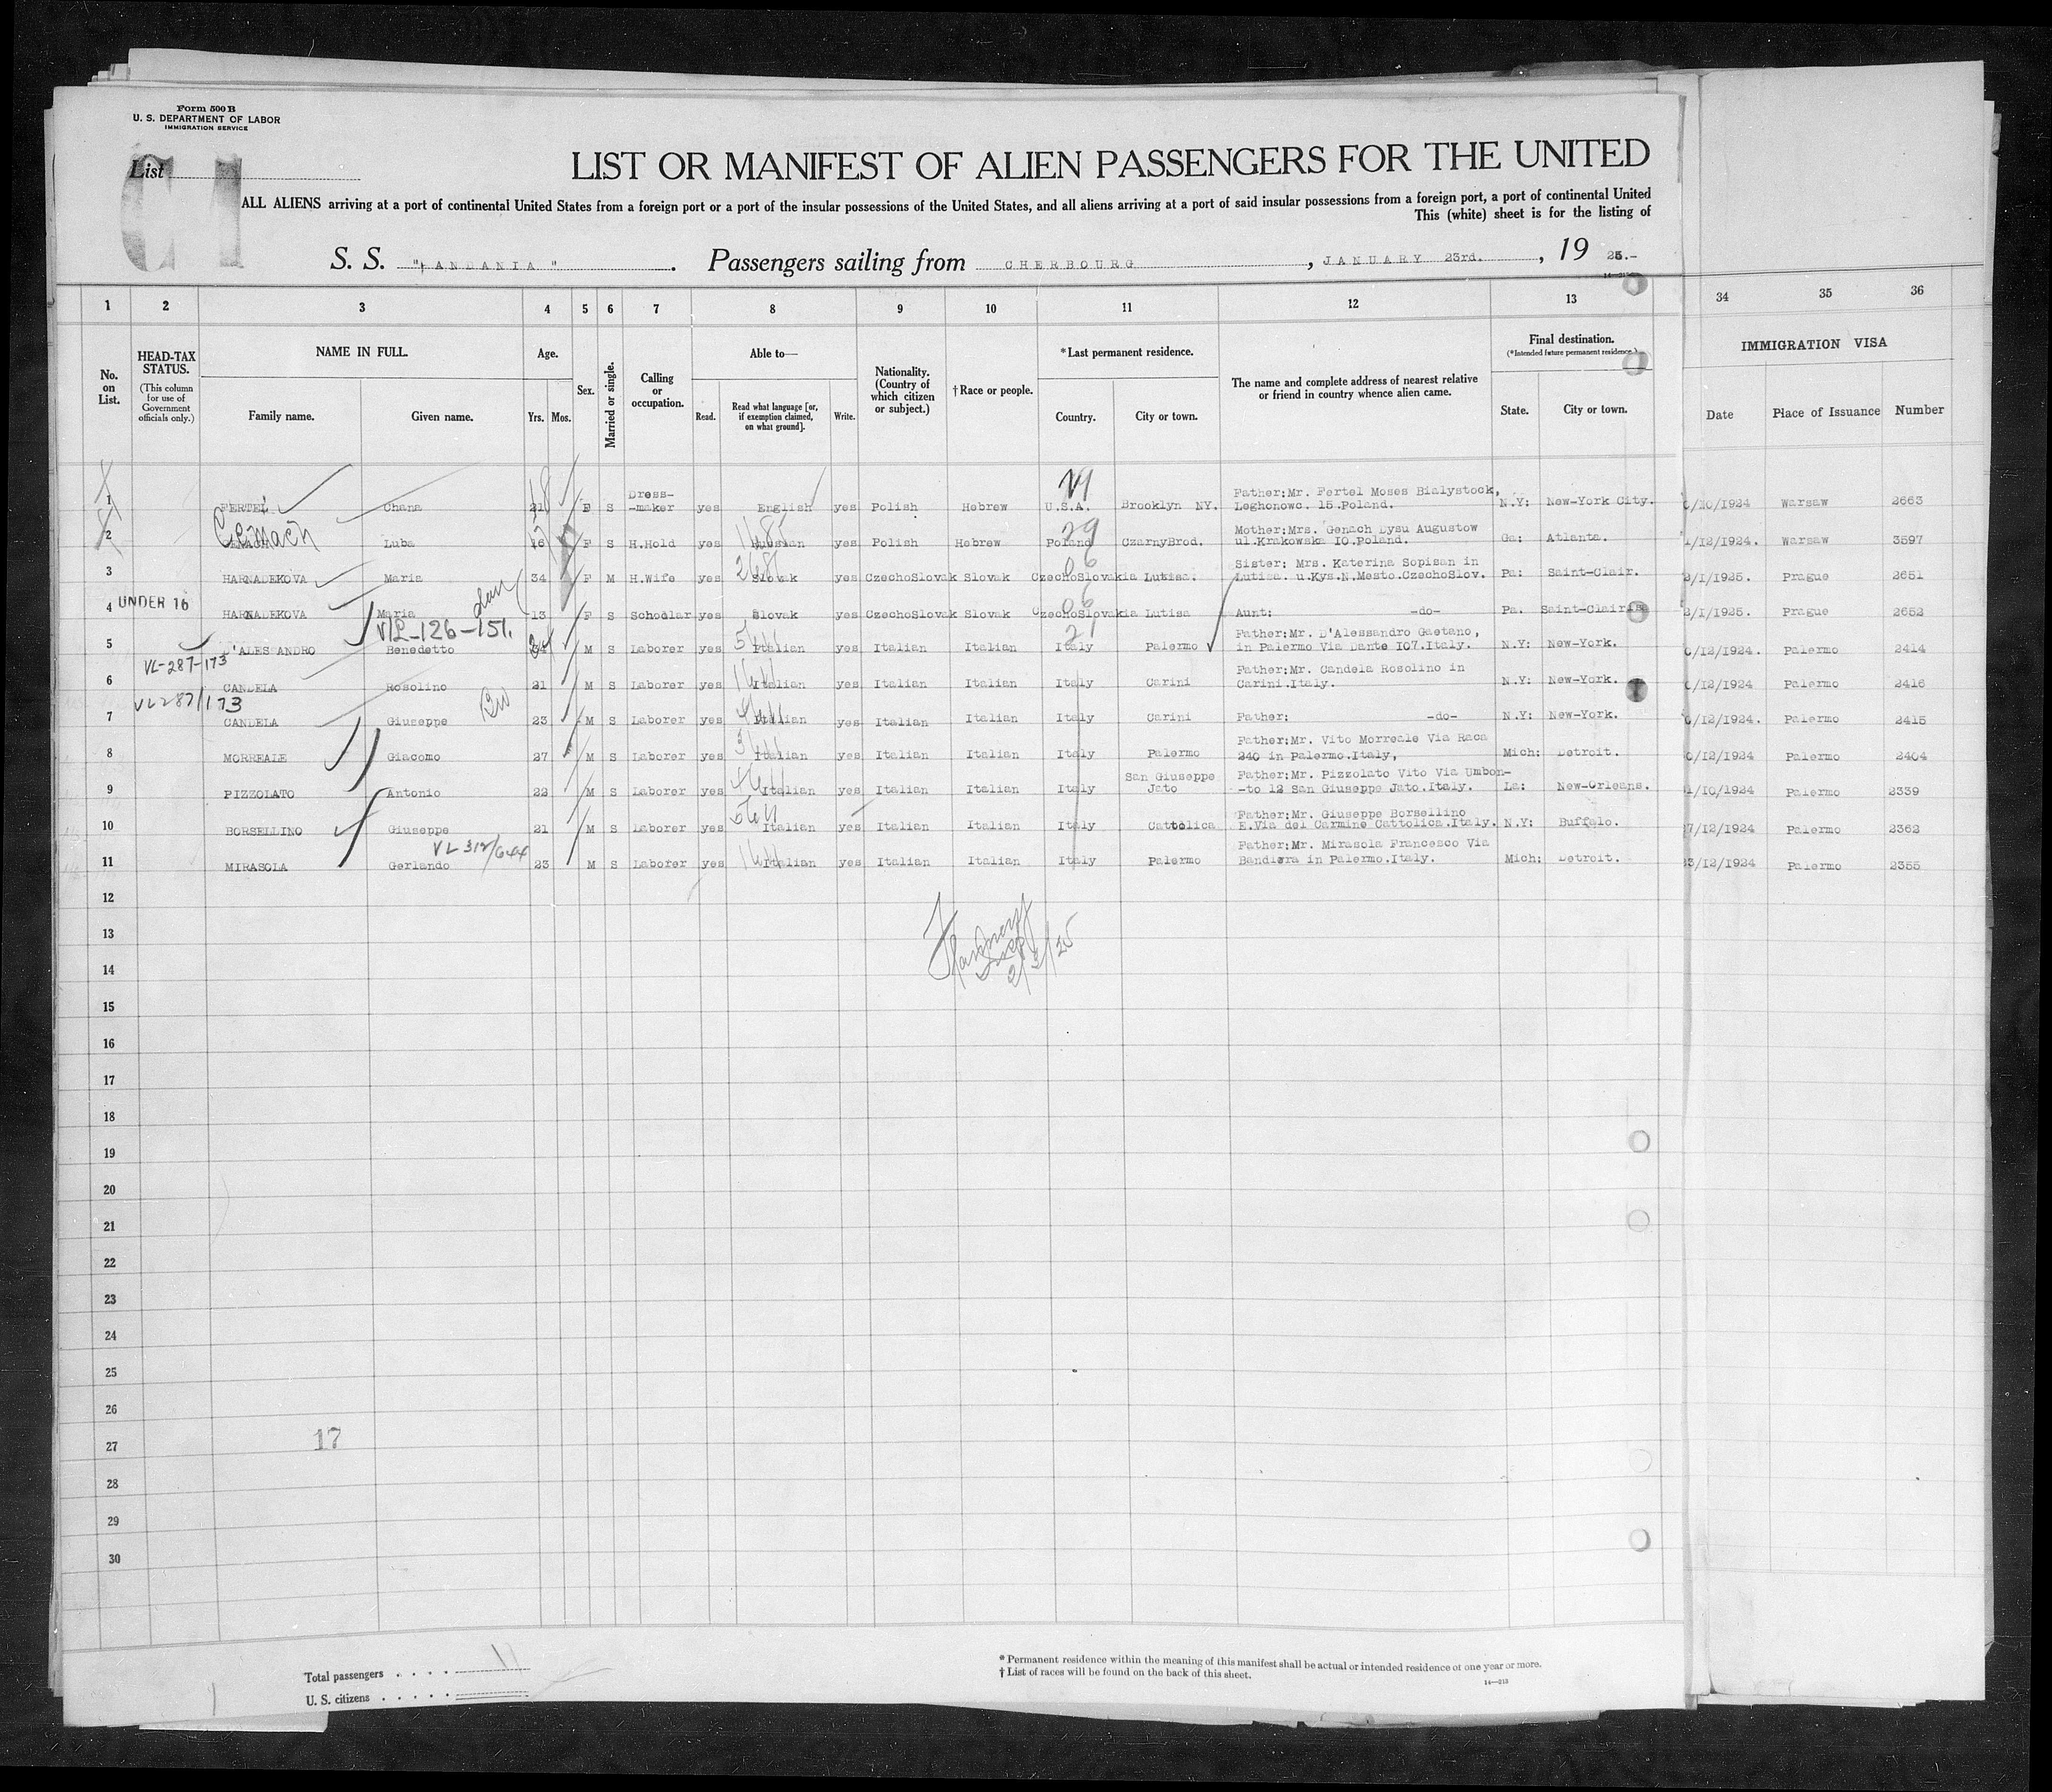 Form 500 B
U. S. DEPARTMENT OF LABOR
IMMIGRATION SERVICE
List
C1
LIST OR MANIFEST OF ALIEN PASSENGERS FOR THE UNITED
ALL ALIENS arriving at a port of continental United States from a foreign port or a port of the insular possessions of the United States, and all aliens arriving at a port of said insular possessions from a foreign port, a port of continental United
This (white) sheet is for the listing of
S. S. "ANDANIA". Passengers sailing from CHERBOURG, JANUARY 23rd., 19 25.-
1 2 3 4 5 6 7 8 9 10 11 12 13 34 35 36
No. on List.
HEAD-TAX STATUS.
(This column for use of Government officials only.)
NAME IN FULL.
Family name. Given name.
Age.
Yrs. Mos.
Sex.
Married or single.
Calling or occupation.
Able to—
Read. Read what language [or, if exemption claimed, on what ground]. Write.
Nationality. (Country of which citizen or subject.)
† Race or people.
*Last permanent residence.
Country. City or town.
The name and complete address of nearest relative or friend in country whence alien came.
Final destination.
(*Intended future permanent residence.)
State. City or town.
IMMIGRATION VISA
Date Place of Issuance Number
1 FERTEL Chana 21 18 F S Dress-maker yes English yes Polish Hebrew U.S.A. Brooklyn NY. Father:Mr. Fertel Moses Bialystock, Leghonowc. 15.Poland. N.Y: New-York City. /10/1924 Warsaw 2663
2 Luba F S H.Hold yes Russian yes Polish Hebrew Poland CzarnyBrod. Mother:Mrs. Genach Dysu Augustow ul.Krakowska IO.Poland. Ga: Atlanta. 1/12/1924. Warsaw 3597
3 HARNADEKOVA Maria 34 F M H.Wife yes 268 Slovak yes CzechoSlovak Slovak CzechoSlovakia Lutisa. Sister: Mrs. Katerina Sopisan in Lutisa. u.Kys.N.Mesto.CzechoSlov. Pa: Saint-Clair. 2/1/1925. Prague 2651
4 UNDER 16 HARNADEKOVA Maria 13 F S Schoolar yes Slovak yes CzechoSlovak Slovak CzechoSlovakia Lutisa Aunt: -do- Pa. Saint-Clair 2/1/1925. Prague 2652
VL-126-151.
5 D'ALESSANDRO Benedetto M S Laborer yes Italian yes Italian Italian Italy Palermo Father:Mr. D'Alessandro Gaetano, in Palermo Via Dante IO7.Italy. N.Y: New-York. /12/1924. Palermo 2414
VL-287-173
6 CANDELA Rosolino 21 M S Laborer yes Italian yes Italian Italian Italy Carini Father:Mr. Candela Rosolino in Carini.Italy. N.Y: New-York. /12/1924 Palermo 2416
VL287/173
7 CANDELA Giuseppe 23 M S Laborer yes Italian yes Italian Italian Italy Carini Father: -do- N.Y: New-York. /12/1924. Palermo 2415
8 MORREALE Giacomo 27 M S Laborer yes Italian yes Italian Italian Italy Palermo Father:Mr. Vito Morreale Via Raca 240 in Palermo.Italy, Mich: Detroit. /12/1924 Palermo 2404
9 PIZZOLATO Antonio 22 M S Laborer yes Italian yes Italian Italian Italy San Giuseppe Jato Father:Mr. Pizzolato Vito Via Umbon--to 12 San Giuseppe Jato.Italy. La: New-Orleans. 1/10/1924 Palermo 2339
10 BORSELLINO Giuseppe 21 M S Laborer yes Italian yes Italian Italian Italy Cattolica Father:Mr. Giuseppe Borsellino E.Via del Carmine Cattolica.Italy. N.Y: Buffalo. 7/12/1924 Palermo 2362
VL 312/644
11 MIRASOLA Gerlando 23 M S Laborer yes Italian yes Italian Italian Italy Palermo Father:Mr. Mirasola Francesco Via Bandiera in Palermo.Italy. Mich: Detroit. 3/12/1924 Palermo 2355
12
13
2/3/25
14
15
16
17
18
19
20
21
22
23
24
25
26
17
27
28
29
30
Total passengers . . . . 11
U. S. citizens . . . . .
* Permanent residence within the meaning of this manifest shall be actual or intended residence of one year or more.
† List of races will be found on the back of this sheet.
14—213